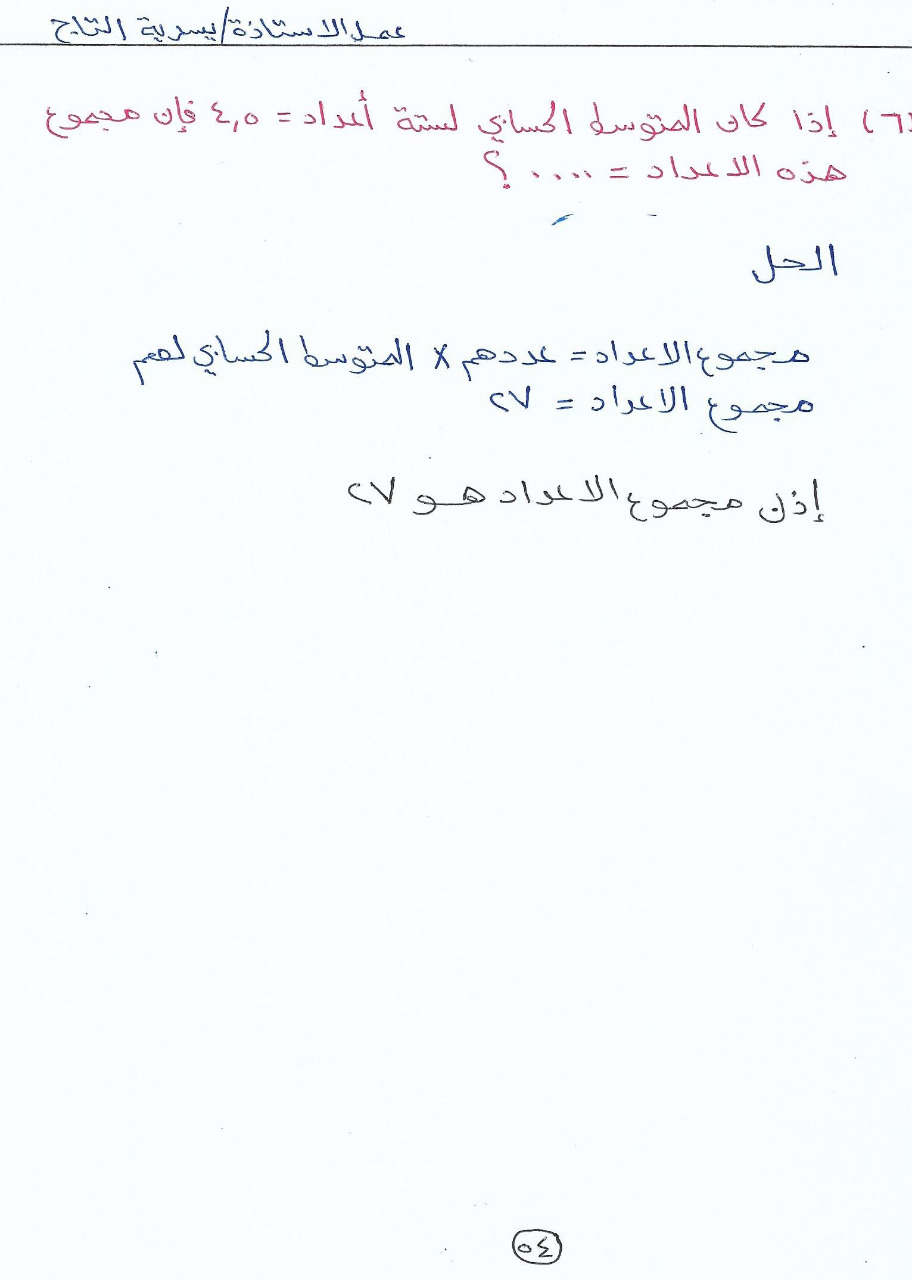 عمل الاستاذة/يسرية التاج
٦) إذا كان المتوسط الحسابي لستة أعداد = ٤,٥ فإن مجموع
هذه الاعداد = .... ؟
الحل
مجموع الاعداد = عددهم × المتوسط الحسابي لهم
مجموع الاعداد = ٢٧
إذن مجموع الاعداد هو ٢٧
٥٤